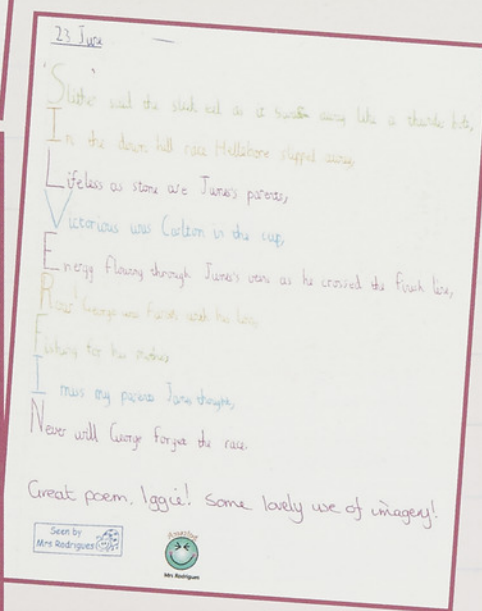 23 June
'Slither' said the sleek eel as it swam away like a
In the down hill race Hellebore slipped away,
Lifeless as stone are James's parents,
Victorious was Carlton in the cup,
Energy flowing through James's veins as he crossed the finish line,
Roar! George was furious with his loss,
Fishing for his mother,
I miss my parents James thought,
Never will George forget the race.
Great poem, Iggie! Some lovely use of imagery!
Seen by
Mrs Rodrigues
Mrs Rodrigues